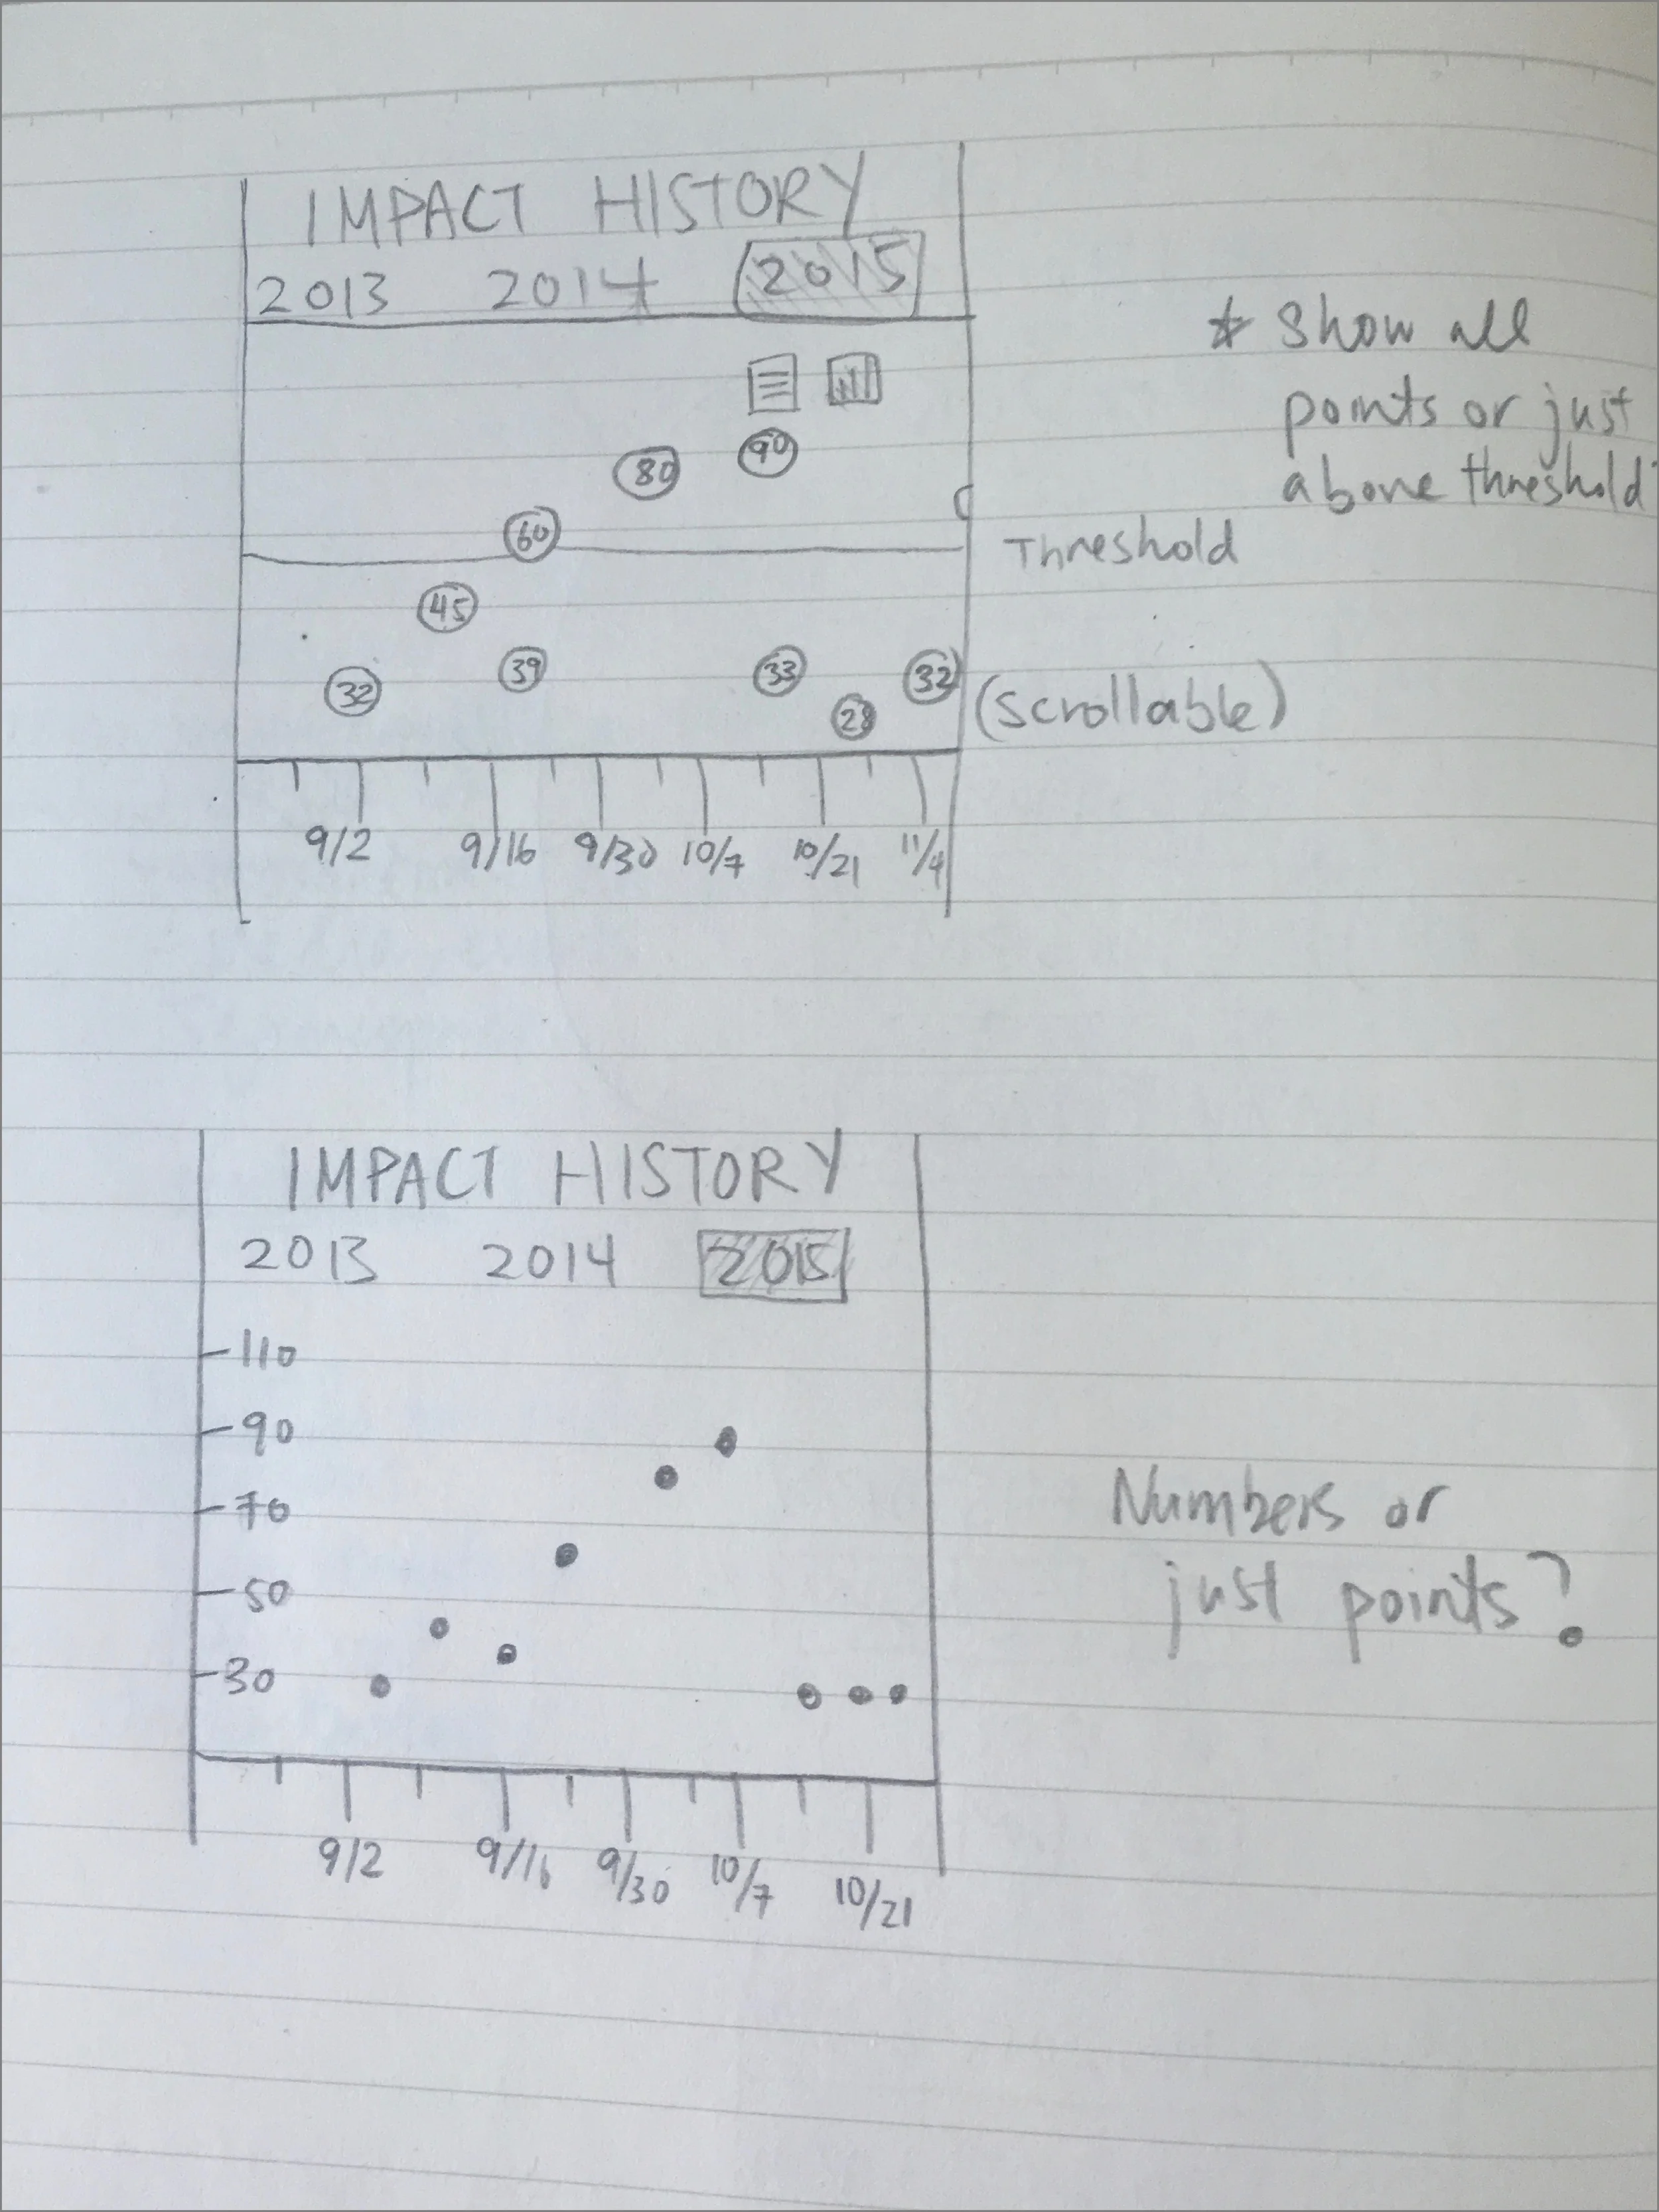 IMPACT HISTORY
2013 2014 2015
* Show all
points or just
above threshold
90
80
60
Threshold
45
39
33
32
32
28
(scrollable)
9/2 9/16 9/30 10/7 10/21 11/4
IMPACT HISTORY
2013 2014 2015
110
90
70
50
30
Numbers or
just points?
9/2 9/16 9/30 10/7 10/21